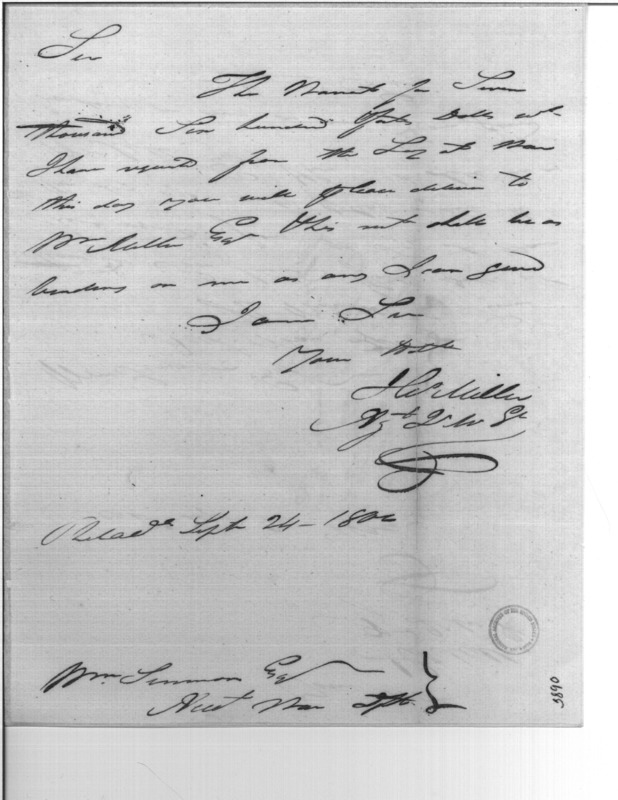 Sir
The Warrant for Seven
thousand Six hundred Dolls wh
I have requested from the Secy at War
this day you will please deliver to
Wm Miller Esqr this not shall be as
binding on me as any I can give
I am Sir
Your
Miller
Agt
Philada Sept 24 - 1800
Wm Simmons Esqr
Acct War Dpt
3890